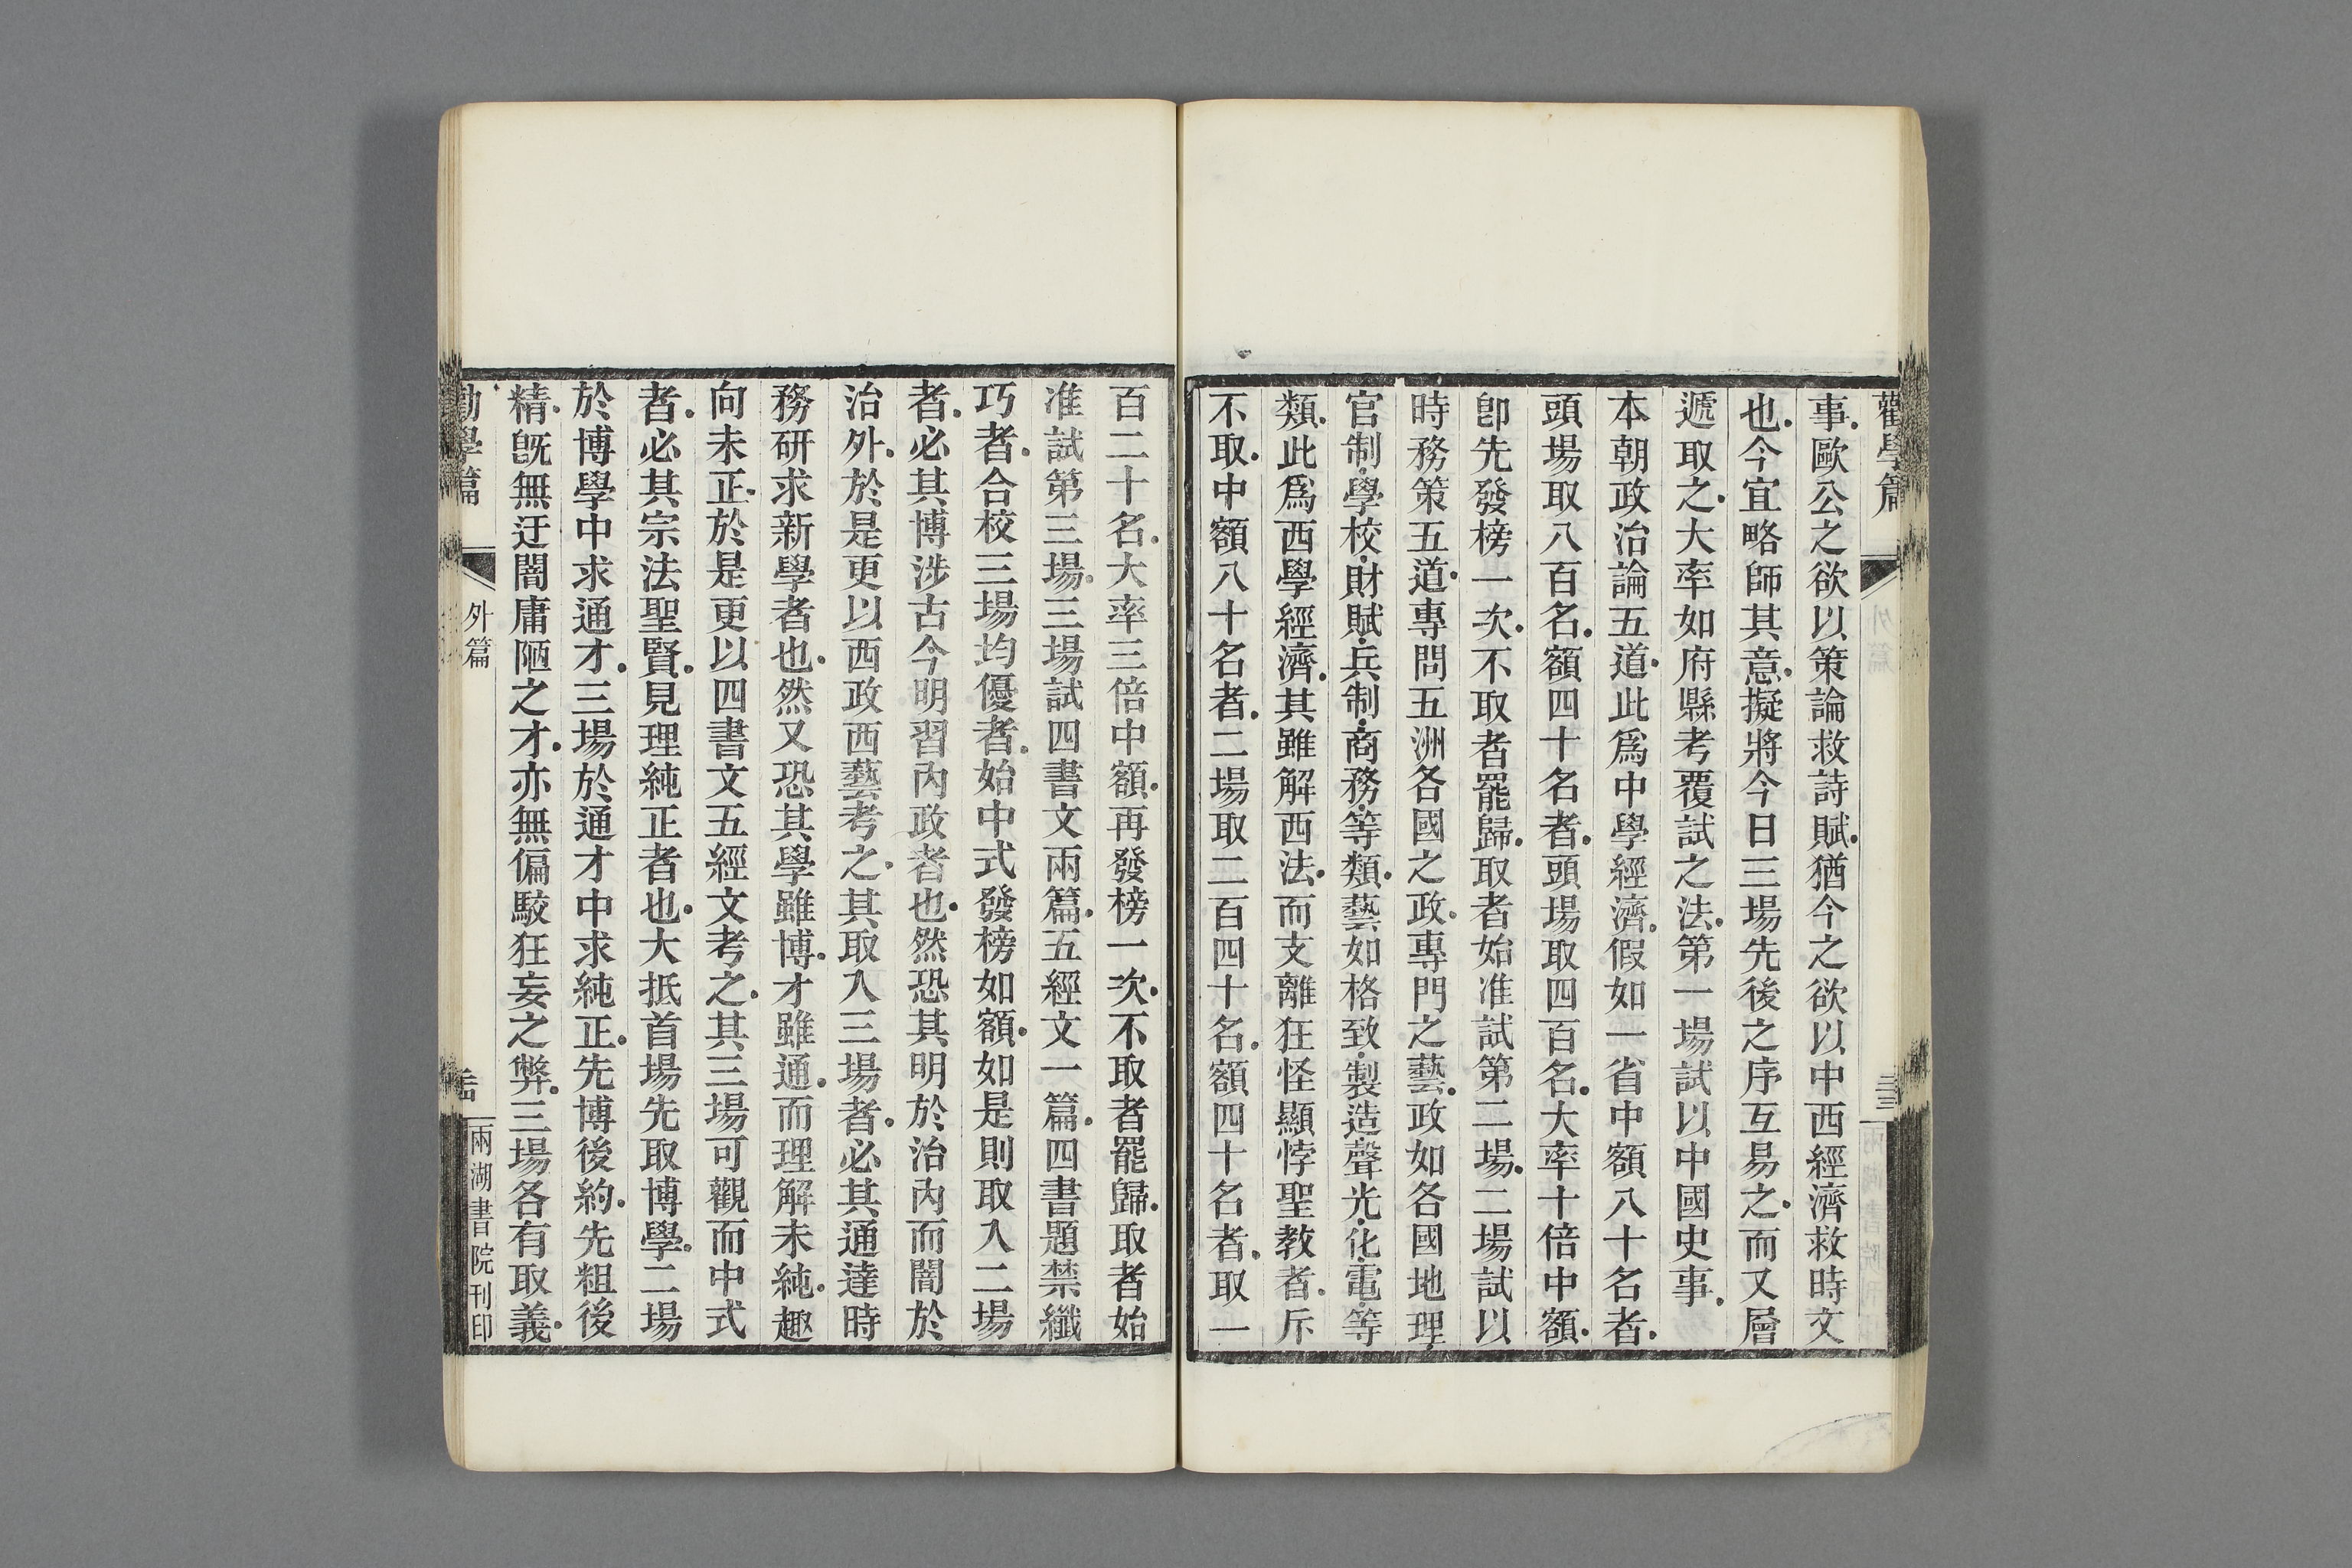 勸學篇
外篇
三三
兩湖書院刊
事歐公之欲以策論救詩賦猶今之欲以中西經濟救時文
也今宜略師其意擬將今日三場先後之序互易之而又層
遞取之大率如府縣考覆試之法第一場試以中國史事
本朝政治論五道此爲中學經濟假如一省中額八十名者
頭場取八百名額四十名者頭場取四百名大率十倍中額
卽先發榜一次不取者罷歸取者始准試第二場二場試以
時務策五道專問五洲各國之政專門之藝政如各國地理
官制學校財賦兵制商務等類藝如格致製造聲光化電等
類此爲西學經濟其雖解西法而支離狂怪顯悖聖教者斥
不取中額八十名者二場取二百四十名額四十名者取一
百二十名大率三倍中額再發榜一次不取者罷歸取者始
准試第三場三場試四書文兩篇五經文一篇四書題禁纖
巧者合校三場均優者始中式發榜如額如是則取入二場
者必其博涉古今明習內政者也然恐其明於治內而闇於
治外於是更以西政西藝考之其取入三場者必其通達時
務研求新學者也然又恐其學雖博才雖通而理解未純趣
向未正於是更以四書文五經文考之其三場可觀而中式
者必其宗法聖賢見理純正者也大抵首場先取博學二場
於博學中求通才三場於通才中求純正先博後約先粗後
精旣無迂闇庸陋之才亦無偏駮狂妄之弊三場各有取義
勸學篇
外篇
兩湖書院刊印